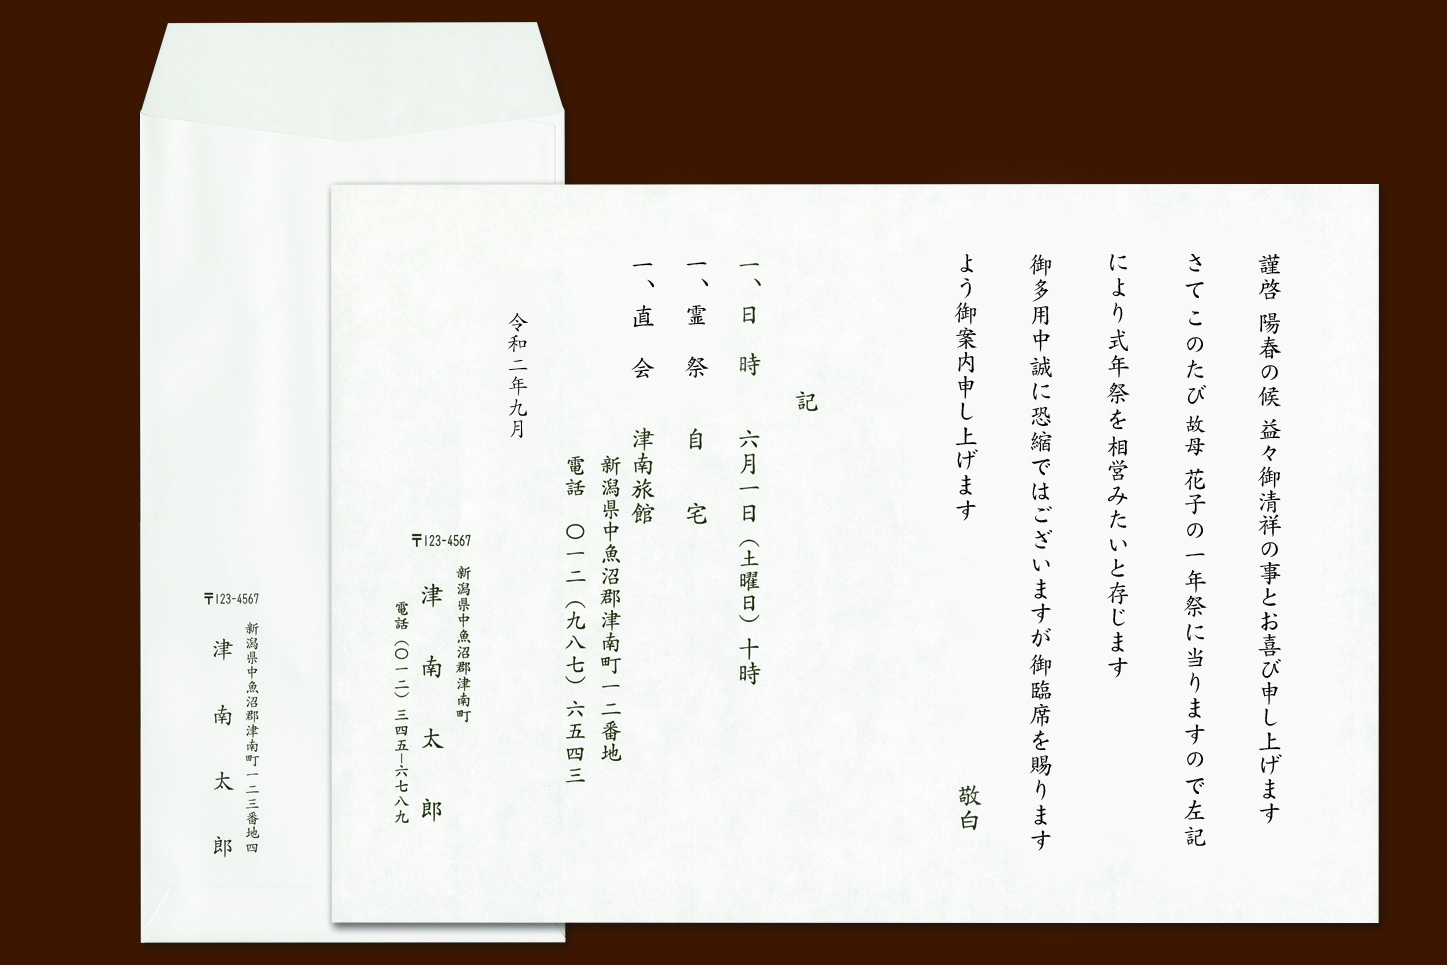 謹啓 陽春の候 益々御清祥の事とお喜び申し上げます
さてこのたび 故母 花子の一年祭に当りますので左記
により式年祭を相営みたいと存じます
御多用中誠に恐縮ではございますが御臨席を賜ります
よう御案内申し上げます
敬白
記
一、日時 六月一日（土曜日）十時
一、霊祭 自宅
一、直会 津南旅館
新潟県中魚沼郡津南町一二番地
電話 〇一二（九八七）六五四三
令和二年九月
〒123-4567
新潟県中魚沼郡津南町
津南太郎
電話（〇一二）三四五―六七八九
〒123-4567
新潟県中魚沼郡津南町一二三番地四
津南太郎